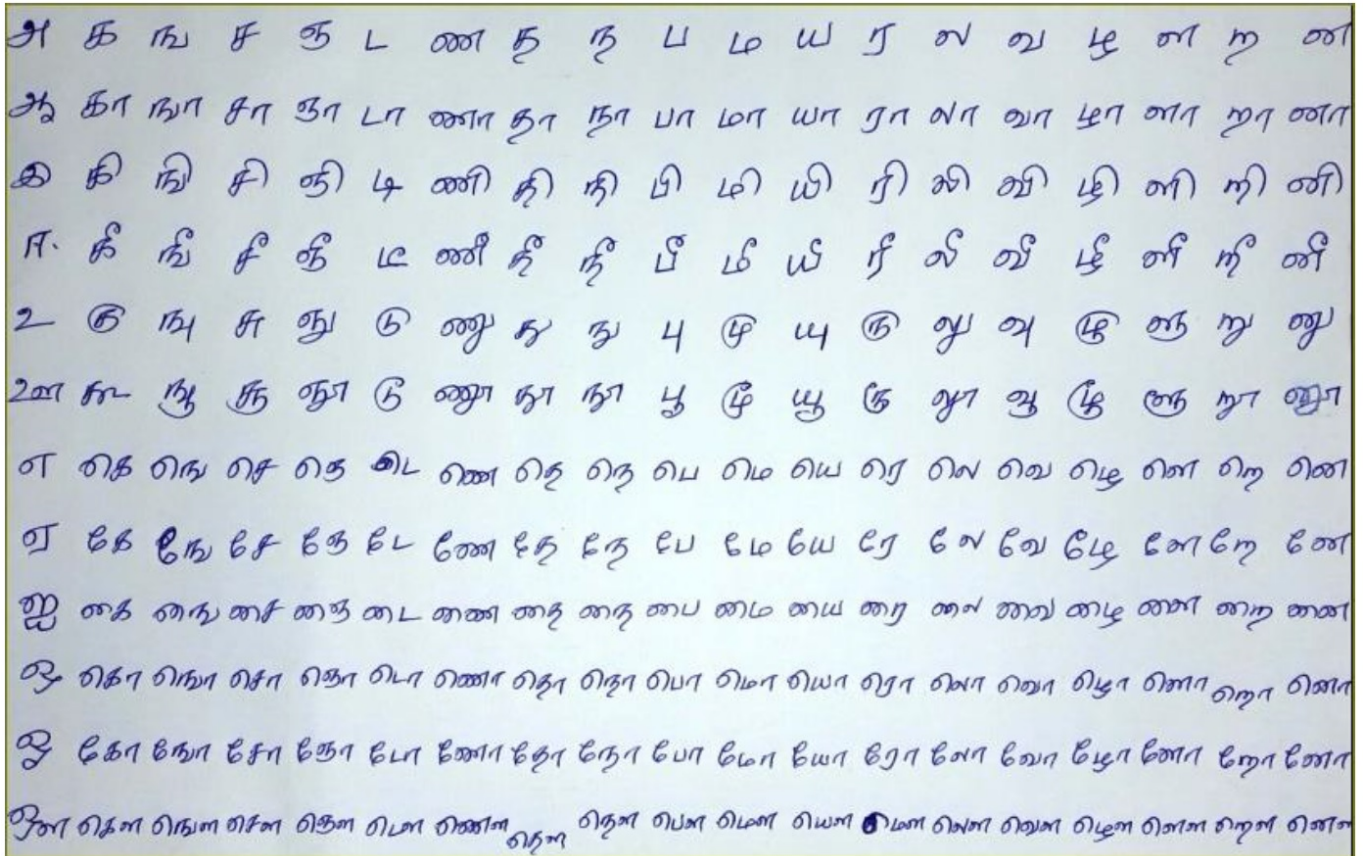 அ க ங ச ஞ ட ண த ந ப ம ய ர ல வ ழ ள ற ன
ஆ கா ஙா சா ஞா டா ணா தா நா பா மா யா ரா லா வா ழா ளா றா னா
இ கி ஙி சி ஞி டி ணி தி நி பி மி யி ரி லி வி ழி ளி றி னி
ஈ கீ ஙீ சீ ஞீ டீ ணீ தீ நீ பீ மீ யீ ரீ லீ வீ ழீ ளீ றீ னீ
உ கு ஙு சு ஞு டு ணு து நு பு மு யு ரு லு வு ழு ளு று னு
ஊ கூ ஙூ சூ ஞூ டூ ணூ தூ நூ பூ மூ யூ ரூ லூ வூ ழூ ளூ றூ னூ
எ கெ ஙெ செ ஞெ டெ ணெ தெ நெ பெ மெ யெ ரெ லெ வெ ழெ ளெ றெ னெ
ஏ கே ஙே சே ஞே டே ணே தே நே பே மே யே ரே லே வே ழே ளே றே னே
ஐ கை ஙை சை ஞை டை ணை தை நை பை மை யை றை லை வை ழை ளை றை னை
ஒ கொ ஙொ சொ ஞொ டொ ணொ தொ நொ பொ மொ யொ ரொ லொ வொ ழொ ளொ றொ னொ
ஓ கோ ஙோ சோ ஞோ டோ ணோ தோ நோ போ மோ யோ ரோ லோ வோ ழோ ளோ றோ னோ
ஔ கௌ ஙௌ சௌ ஞௌ டௌ ணௌ தௌ நௌ பௌ மௌ யௌ லௌ வௌ ழௌ ளௌ றௌ னௌ